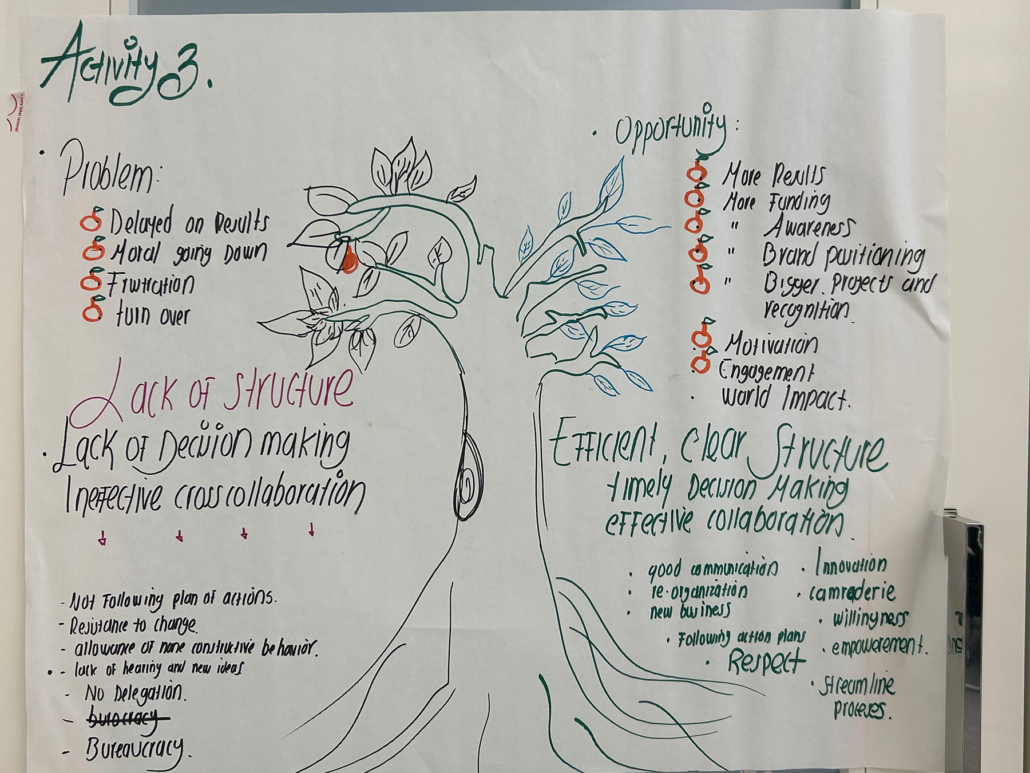 Activity 3.
Problem:
Delayed on Results
Moral going Down
Frustration
turn over
Lack of structure
Lack of Decision making
Ineffective crosscollaboration
- Not Following plan of actions.
- Resistance to change.
- allowance of none constructive behavior.
- lack of hearing and new ideas
- No Delegation.
- burocracy
- Bureaucracy.
Opportunity:
More Results
More Funding
" Awareness
" Brand partitioning
" Bigger. Projects and
recognition.
Motivation
Engagement
World Impact.
Efficient, clear Structure
timely Decision Making
effective collaboration.
good communication
re-organization
new business
Following action plans
Respect
Innovation
camraderie
willingness
empowerement.
streamline
proceses.